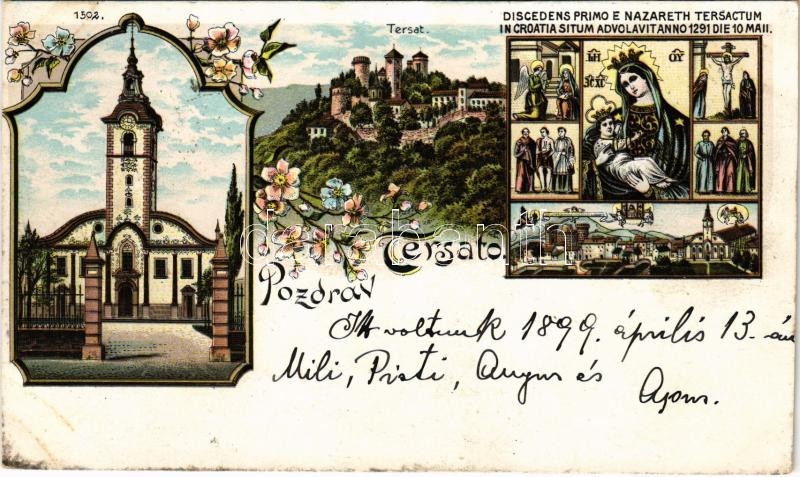 1302.
Tersat.
DISCEDENS PRIMO E NAZARETH TERSACTUM
IN CROATIA SITUM ADVOLAVIT ANNO 1291 DIE 10 MAII.
Pozdrav Tersato.
Itt voltunk 1899. április 13.-án
Mili, Pisti, és
darabanth